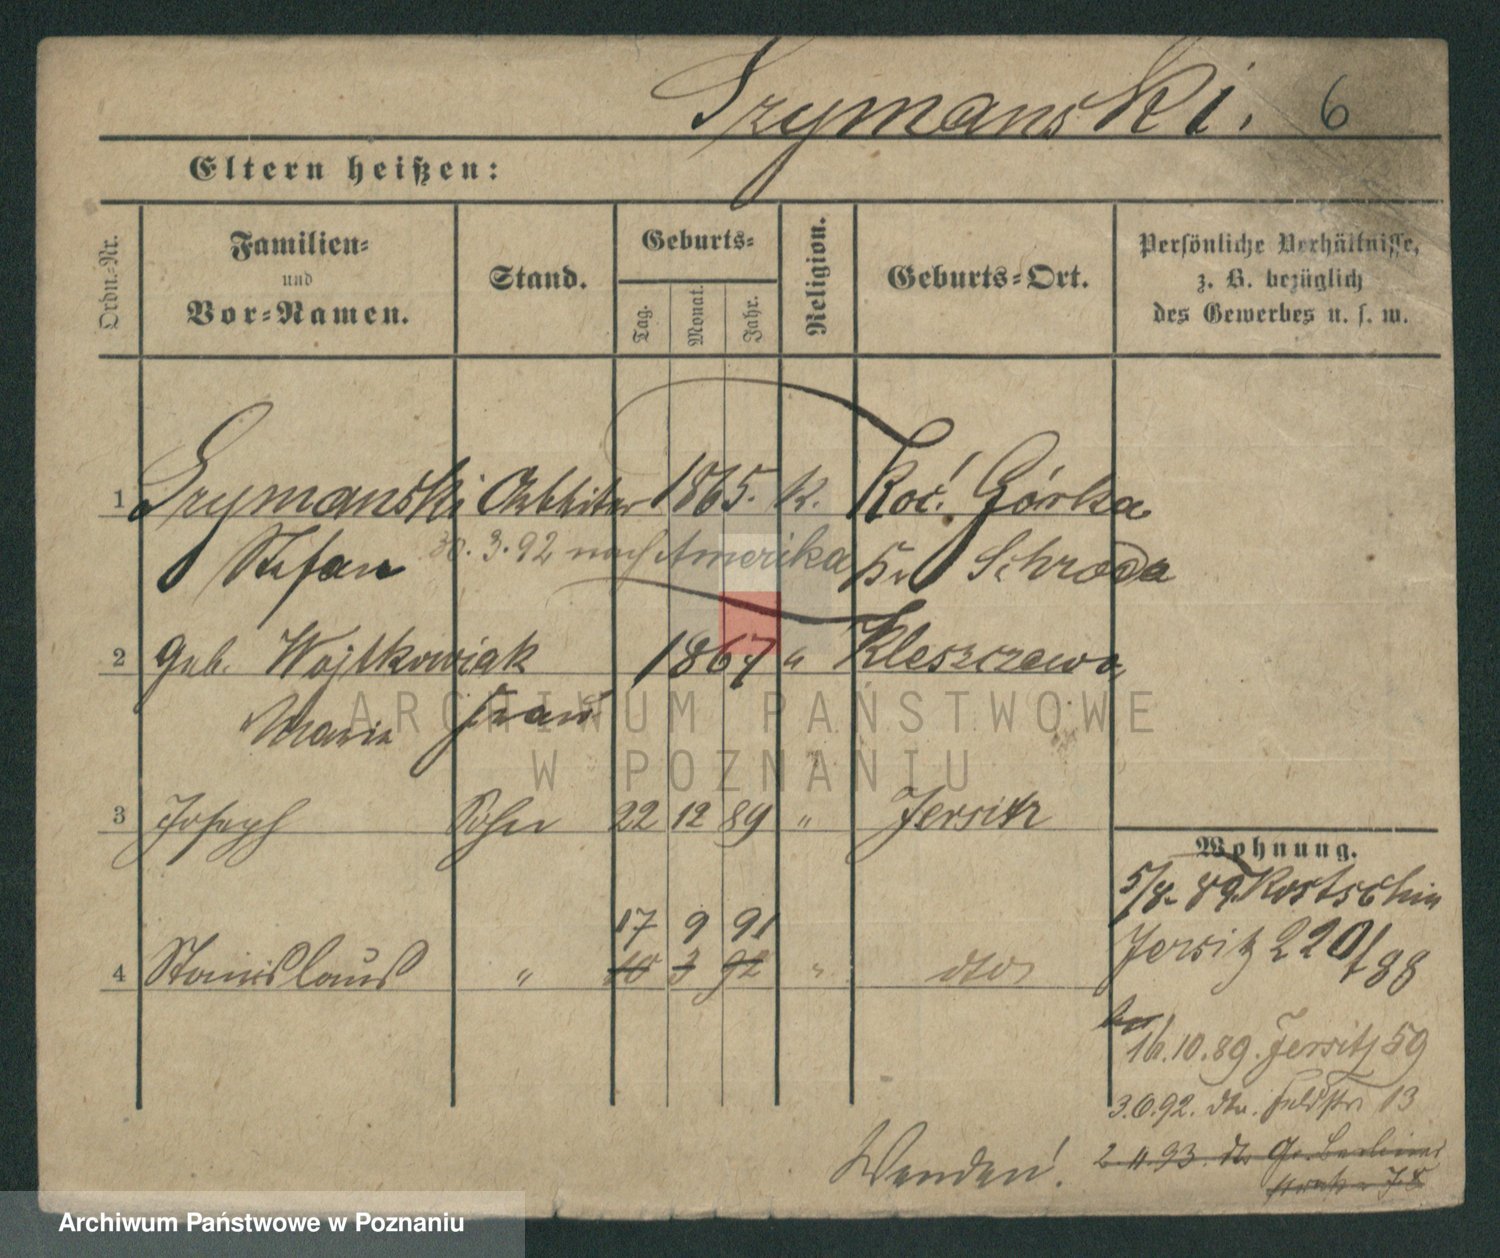 Szymanski. 6
Eltern heißen:
Ordn.-Nr.
Familien-
und
Vor-Namen.
Stand.
Geburts-
Tag.
Monat.
Jahr.
Religion.
Geburts-Ort.
Persönliche Verhältnisse,
z. B. bezüglich
des Gewerbes u. s. w.
1 Szymanski Arbeiter 1865. K. Koć. Górka
Stefan 30.3.92 nach Amerika Kr Schroda
2 geb. Wojtkowiak 1867 " Kleszczewo
Marie Frau
ARCHIWUM PAŃSTWOWE
W POZNANIU
3 Joseph Sohn 22 12 89 " Jersitz
Wohnung.
5/8. 89. Kostschin
17 9 91
Jersitz 220/88
4 Stanislaus " 10 3 92 " dto
16.10.89. Jersitz 59
3.6.92. dto. Feldstr 13
2.11.93. dto Gr. Berliner
Wenden!
Archiwum Państwowe w Poznaniu